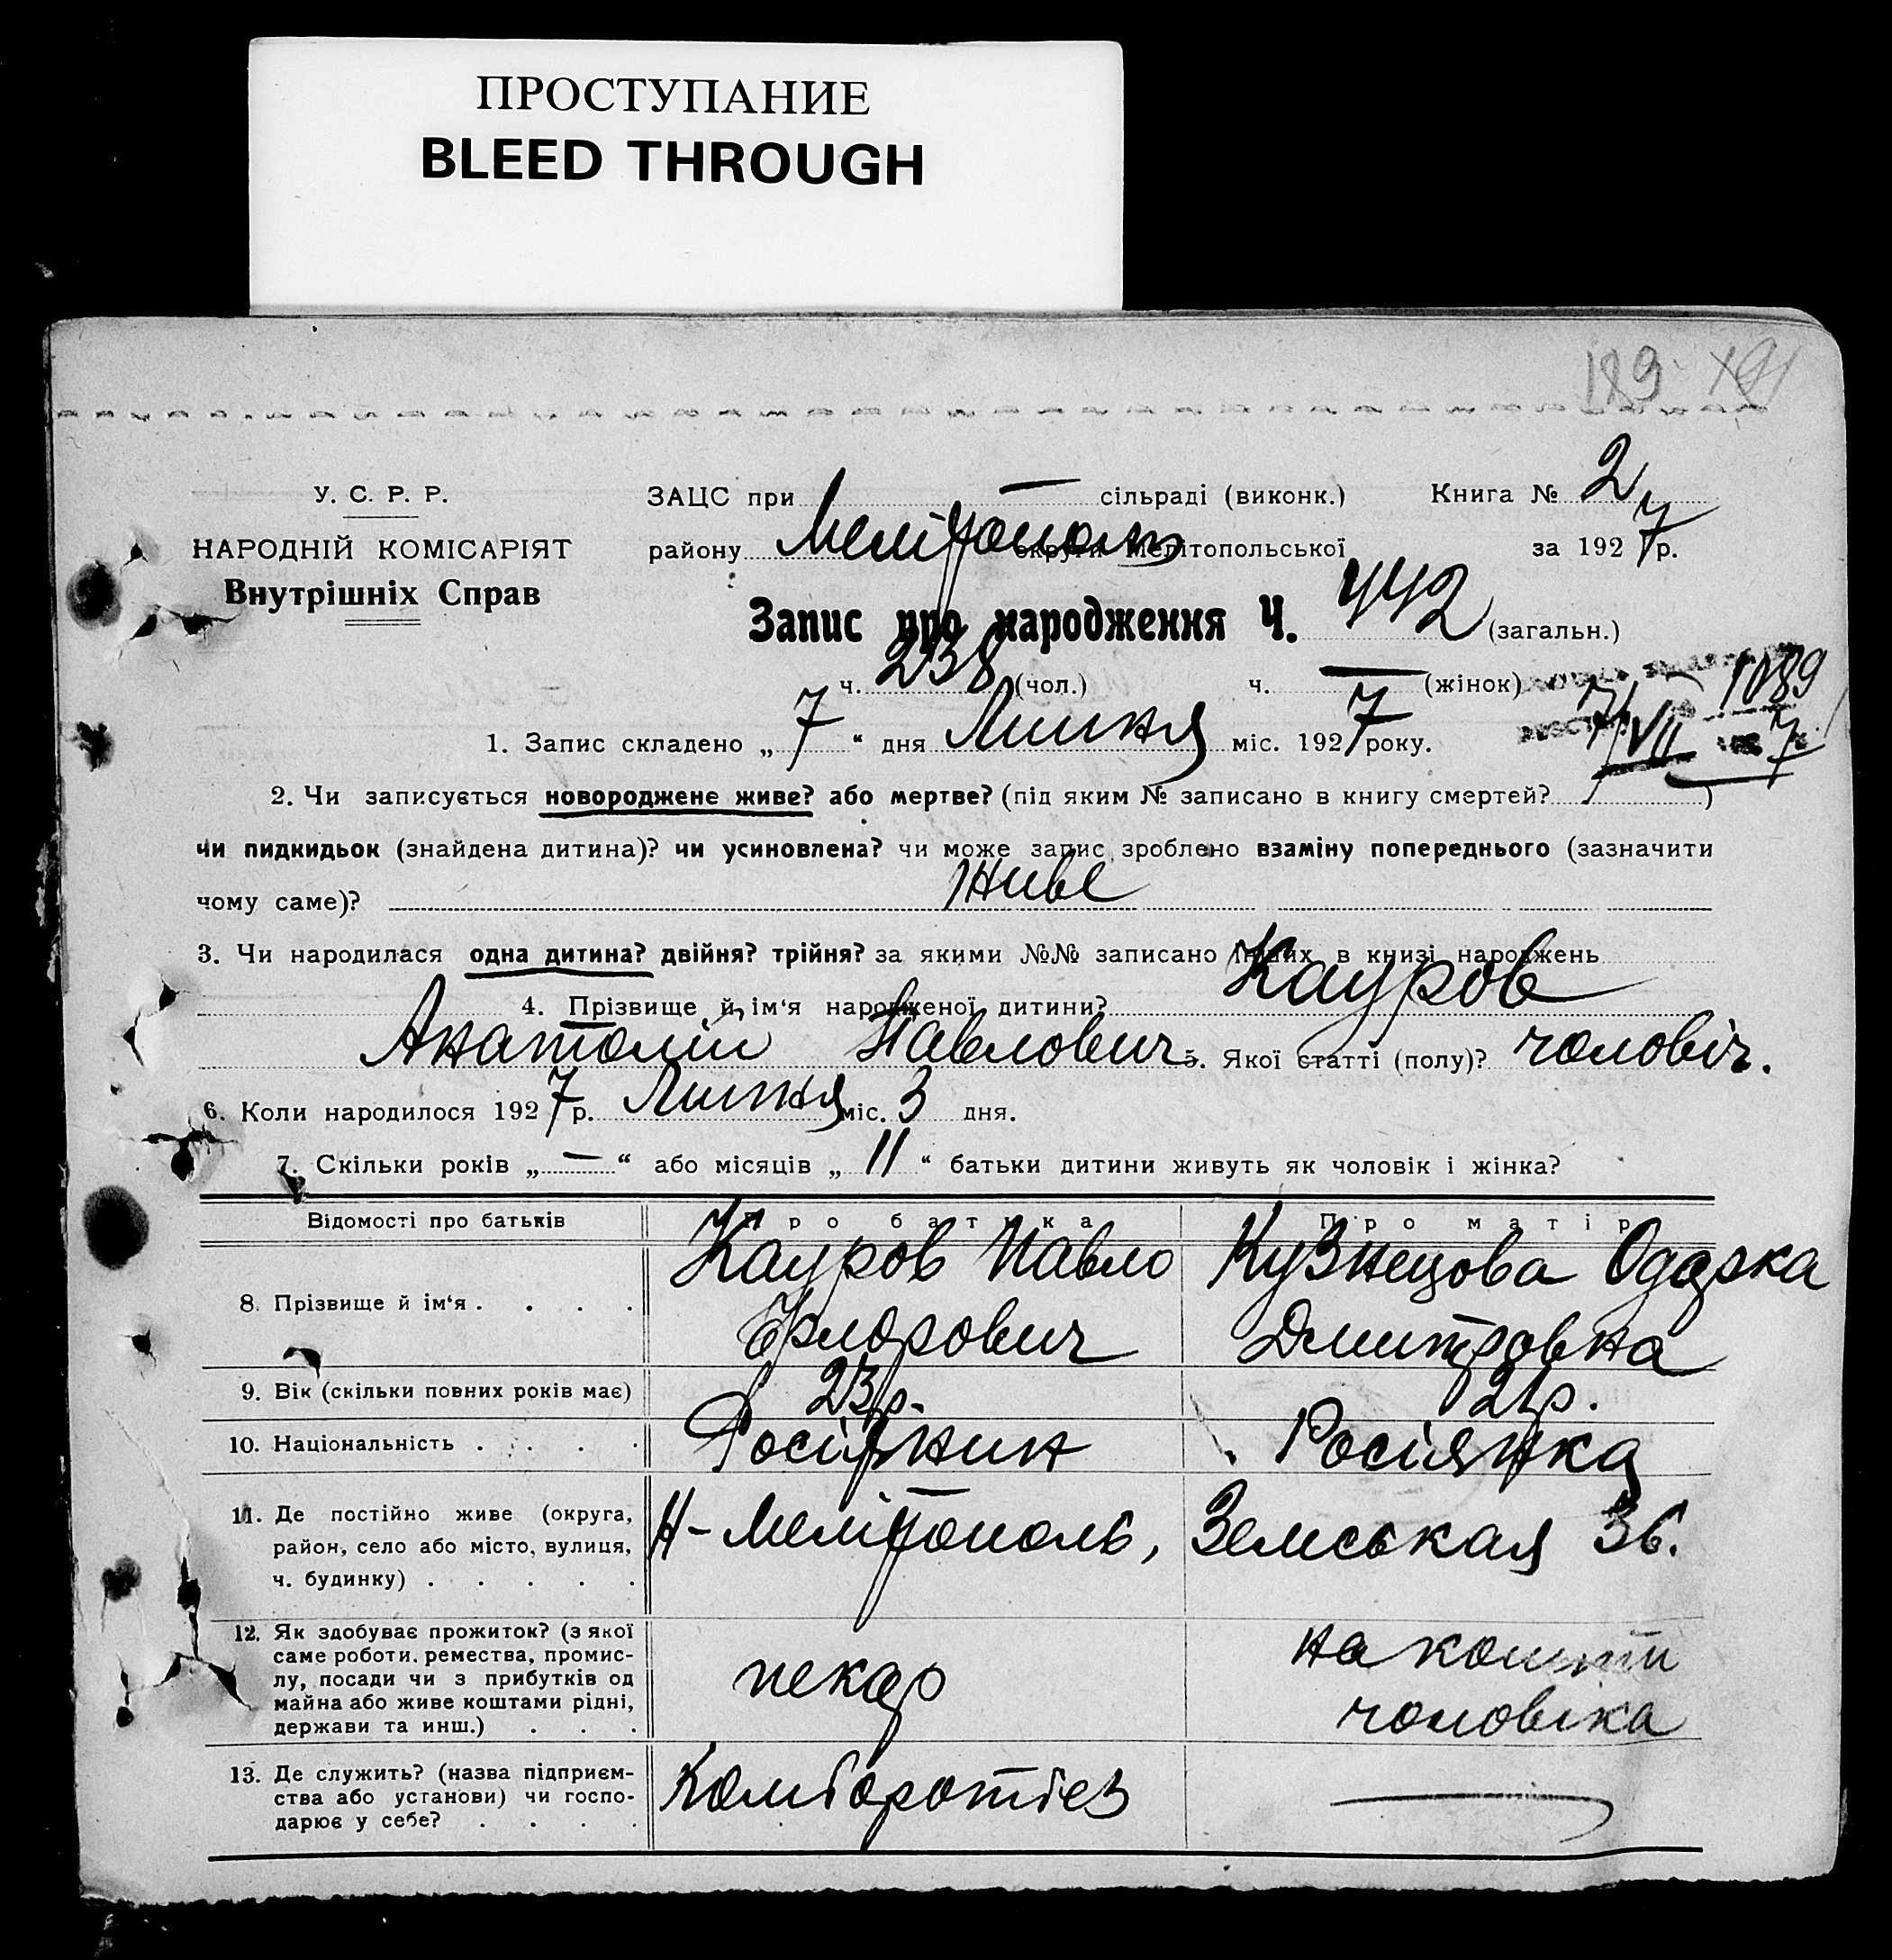 ПРОСТУПАНИЕ
BLEED THROUGH
189 191
У. С. Р. Р.
НАРОДНІЙ КОМІСАРІЯТ
Внутрішніх Справ
ЗАЦС при — сільраді (виконк.) Книга № 2
району Мелітополь округи Мелітопольської за 1927 р.
Запис про народження Ч. 442 (загальн.)
ч. 238 (чол.) ч. — (жінок)
7/VII 1089 7
1. Запис складено „ 7 “ дня Липня міс. 1927 року.
2. Чи записується новороджене живе? або мертве? (під яким № записано в книгу смертей? )
чи пидкидьок (знайдена дитина)? чи усиновлена? чи може запис зроблено взаміну попереднього (зазначити
чому саме)? Живе
3. Чи народилася одна дитина? двійня? трійня? за якими №№ записано інших в книзі народжень
4. Прізвище й ім‘я народженої дитини? Кауров
Анатолій Павлович 5. Якої статті (полу)? чоловіч.
6. Коли народилося 1927 р. Липня міс. 3 дня.
7. Скільки років „ — “ або місяців „ 11 “ батьки дитини живуть як чоловік і жінка?
Відомості про батьків Про батька Про матір
8. Прізвище й ім‘я . . . . Кауров Павло Кузнецова Одарка
Фролович Дмитровна
9. Вік (скільки повних років має) 23 р. 21 р.
10. Національність . . . . Росіянин Росіянка
11. Де постійно живе (округа,
район, село або місто, вулиця,
ч. будинку) . . . . . Н-Мелітополь, Земськая 36.
12. Як здобуває прожиток? (з якої
саме роботи, ремества, промис-
лу, посади чи з прибутків од
майна або живе коштами рідні,
держави та инш.) . . . пекар на кошти
чоловіка
13. Де служить? (назва підприєм-
ства або установи) чи госпо-
дарює у себе? . . . . Комборотбез —